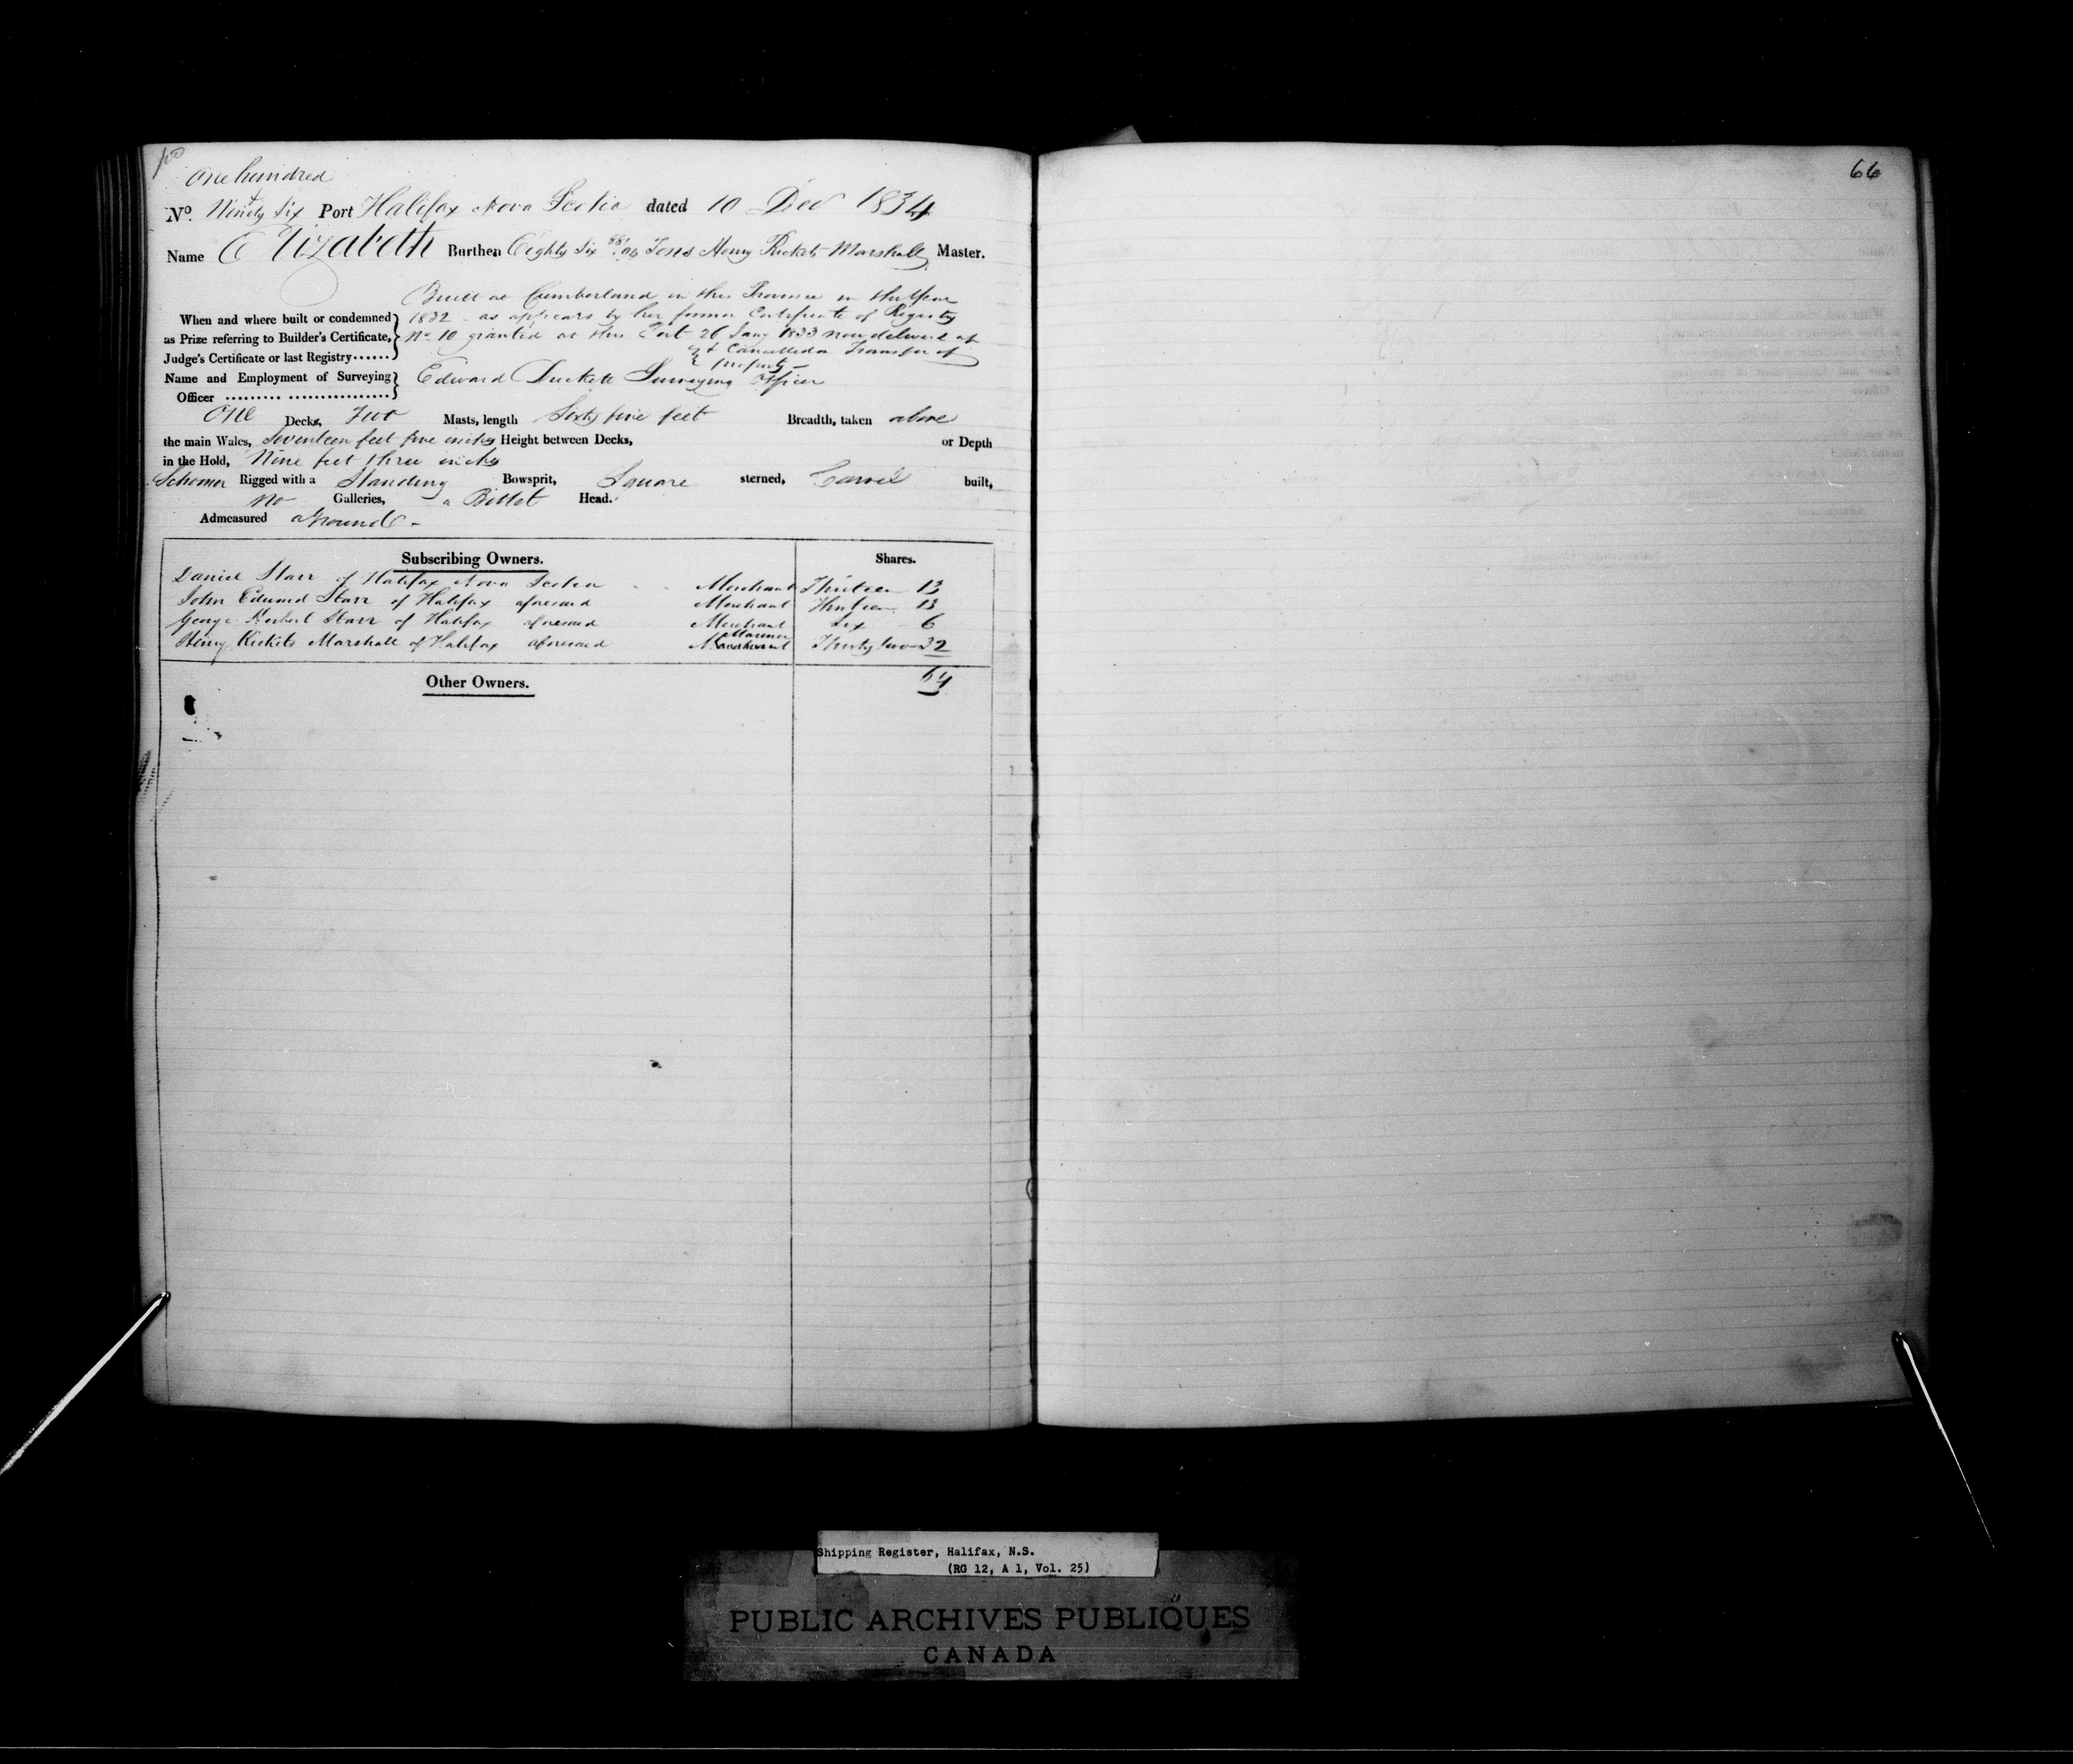 One hundred
&
No. Ninety Six Port Halifax Nova Scotia dated 10 Decr 1834
Name Elizabeth Burthen Eighty Six 88/96 Tons Henry Rickets Marshall Master.
Built at Cumberland in this Province in the Year
When and where built or condemned 1832 - as appears by her former Certificate of Registry
as Prize referring to Builder's Certificate, No 10 granted at this Port 26 Jany 1833 now delivered up
Judge's Certificate or last Registry...... & Cancelled Transfer of
property -
Name and Employment of Surveying Edward Duckett Surveying Officer
Officer ......... ................
One Decks, Two Masts, length Sixty five feet Breadth, taken above
the main Wales, Seventeen feet five inches Height between Decks, or Depth
in the Hold, Nine feet three inches
Schooner Rigged with a Standing Bowsprit, Square sterned, Carvel built,
no Galleries, a Billet Head.
Admeasured aground -
Subscribing Owners. Shares.
Daniel Starr of Halifax Nova Scotia Merchant Thirteen 13
John Edward Starr of Halifax aforesaid Merchant Thirteen 13
George Herbert Starr of Halifax aforesaid Merchant Six 6
Mariner
Henry Rickets Marshall of Halifax aforesaid Thirty two 32
Other Owners. 64
66
Shipping Register, Halifax, N.S.
(RG 12, A 1, Vol. 25)
PUBLIC ARCHIVES PUBLIQUES
CANADA